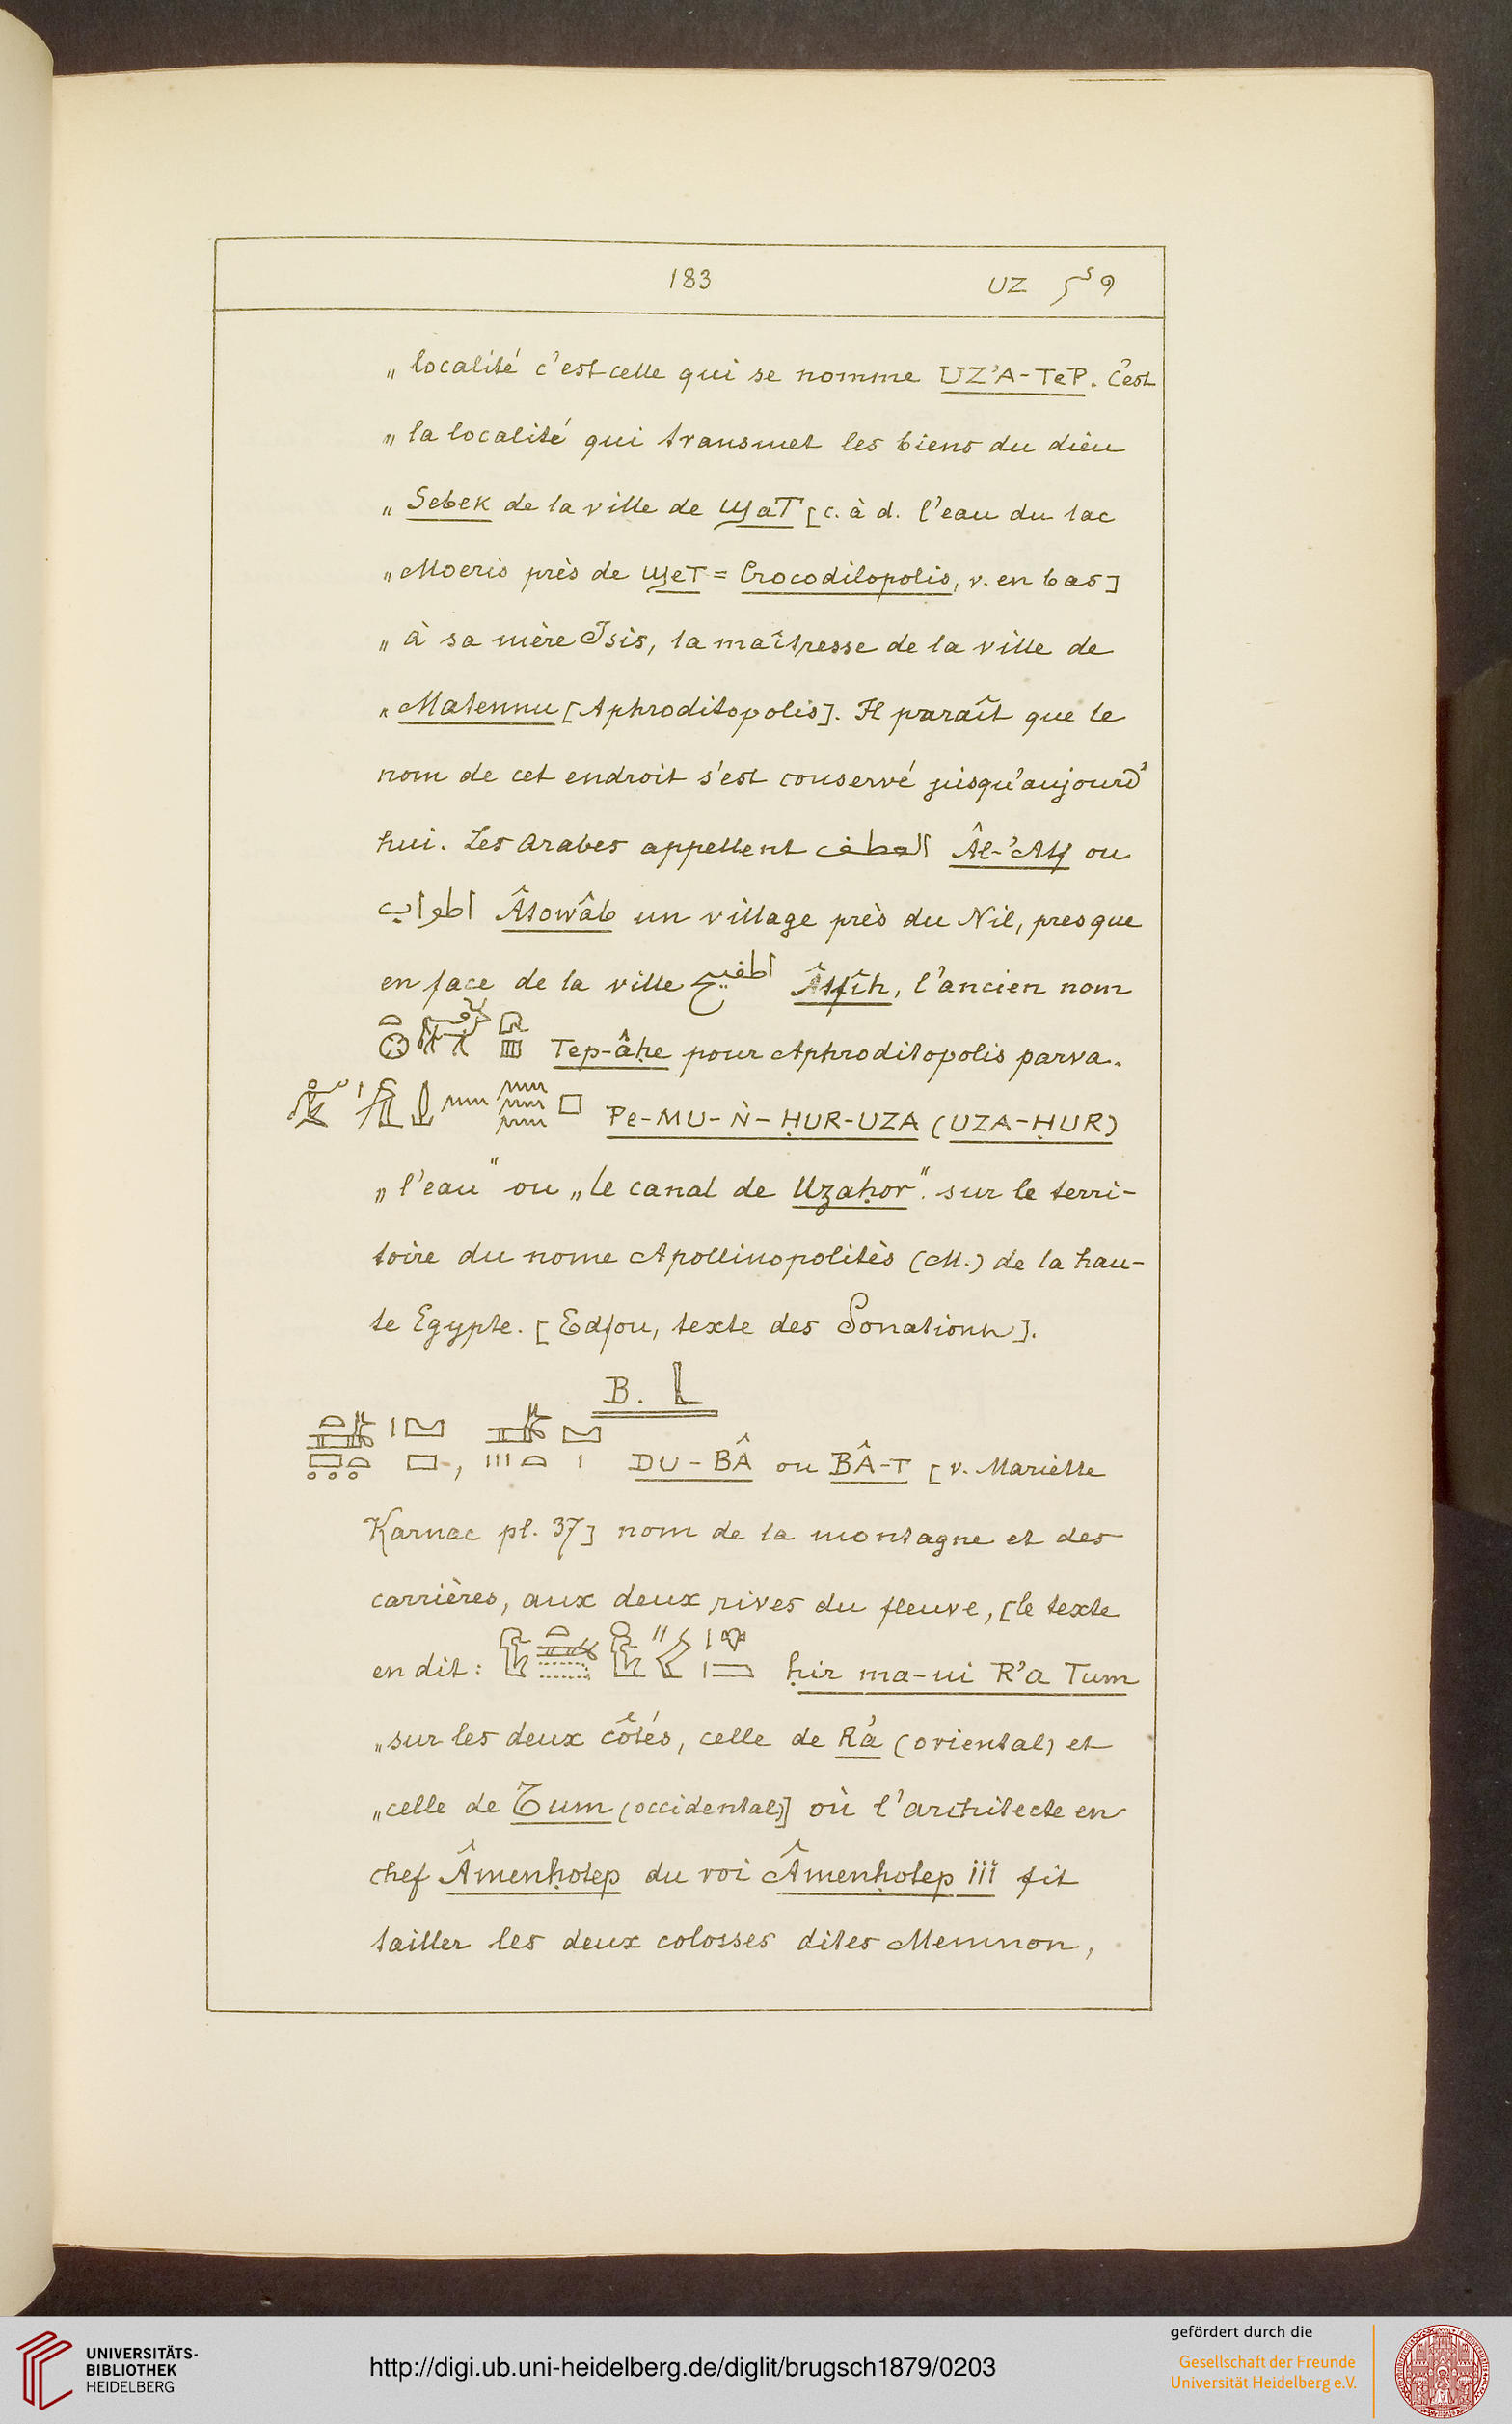 183 UZ
„ localité c'est celle qui se nomme UZ'A-TeP. C'est
„ la localité qui transmet les biens du dieu
„ Sebek de la ville de ϣaT [c. à d. l'eau du lac
„ Moeris près de ϣeT = Crocodilopolis, v. en bas]
„ à sa mère Isis, la maîtresse de la ville de
„ Matennu [Aphroditopolis]. Il paraît que le
nom de cet endroit s'est conservé jusqu'aujourd'
hui. Les Arabes appellent العطف Âl-'Atf ou
اطواب Âtowâb un village près du Nil, presque
en face de la ville اطفيح Âtfîh, l'ancien nom
Tep-âḥe pour Aphroditopolis parva.
Pe-MU-Ǹ-ḤUR-UZA (UZA-ḤUR)
„ l'eau" ou „ le canal de Uzaḥor". sur le terri-
toire du nome Apollinopolitès (M.) de la hau-
te Egypte. [Edfou, texte des Donations].
B.
DU-BÂ ou BÂ-T [v. Mariette
Karnac pl. 37] nom de la montagne et des
carrières, aux deux rives du fleuve, [le texte
en dit: ḥir ma-ui R'a Tum
„ sur les deux côtés, celle de R'a (oriental) et
„ celle de Tum (occidental)] où l'architecte en
chef Âmenḥotep du roi Âmenḥotep iii fit
tailler les deux colosses dites Memnon,
UNIVERSITÄTS-
BIBLIOTHEK
HEIDELBERG
http://digi.ub.uni-heidelberg.de/diglit/brugsch1879/0203
gefördert durch die
Gesellschaft der Freunde
Universität Heidelberg e.V.